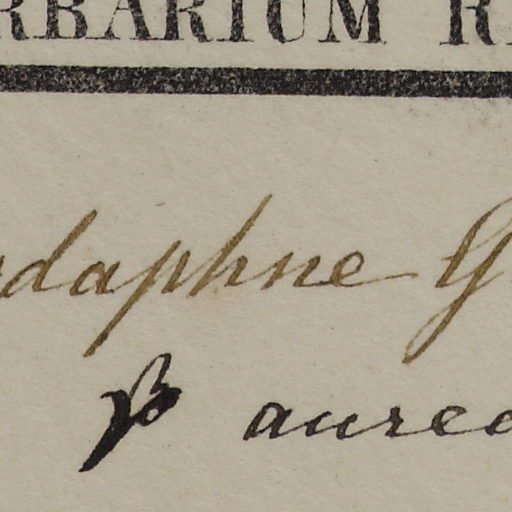 RBARIUM R
daphne G
β aurea